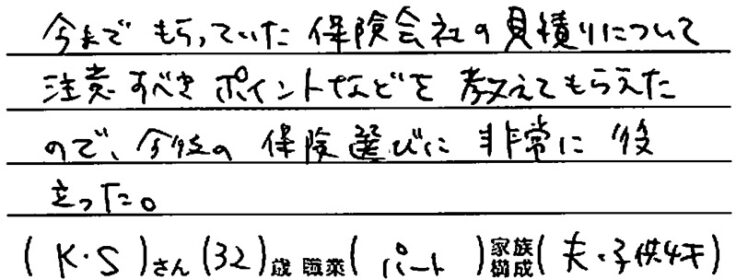 今までもらっていた保険会社の見積りについて
注意すべきポイントなどを教えてもらえた
ので、今後の保険選びに非常に役
立った。
(K・S)さん(32)歳 職業(パート)家族構成(夫・子供4才)